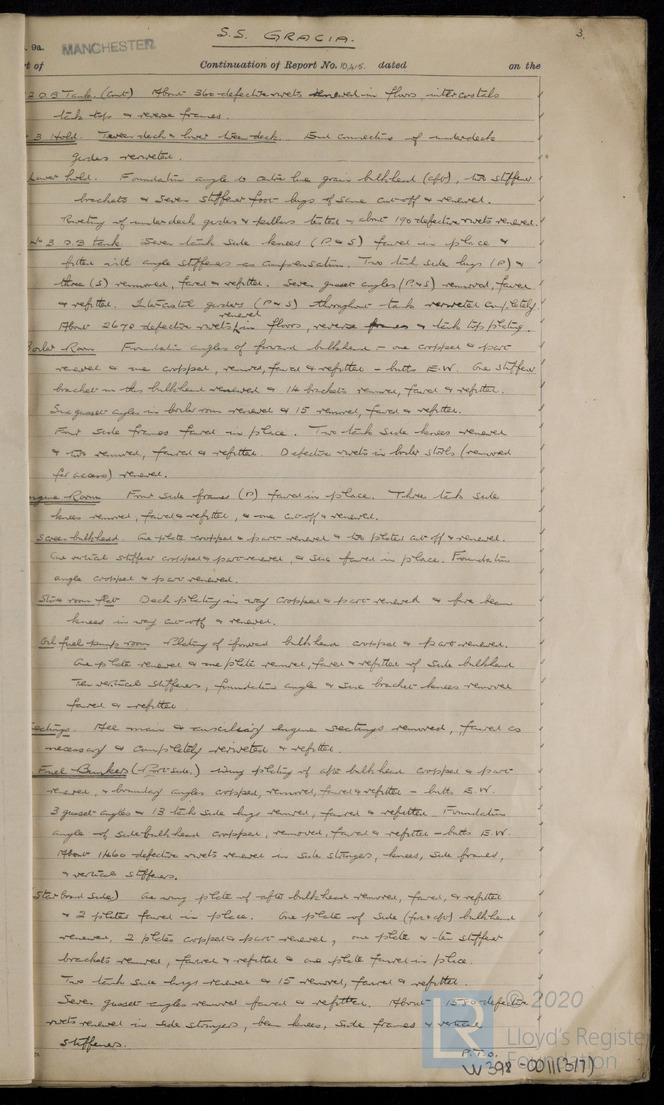 S.S. GRACIA.
3.
9a.
MANCHESTER
t of
Continuation of Report No. 10,415. dated
on the
2 O.B Tank. (Cont) About 360 defective rivets renewed in floors, intercostals
tank top & reverse frames.
3 Hold. Tween deck & lower tween deck. End connections of underdeck
girders reriveted.
Lower hold. Foundation angle to centre line grain bulkhead (aft), two stiffener
brackets & seven stiffener foot lugs of same cut off & renewed.
Riveting of underdeck girders & pillars tested & about 190 defective rivets renewed.
No 3 D.B tank Seven tank side knees (P & S) faired in place &
fitted with angle stiffeners as compensation. Two tank side lugs (P) &
three (S) removed, faired & refitted. Seven gusset angles (P & S) removed, faired
& refitted. Intercostal girders (P & S) throughout tank reriveted completely.
About 2670 defective rivets renewed in floors, reverse frames & tank top plating.
Boiler Room Foundation angles of forward bulkhead - one cropped & part
renewed & one cropped, removed, faired & refitted - butts E.W. One stiffener
bracket on this bulkhead renewed & 14 brackets removed, faired & refitted.
Six gusset angles in boiler room renewed & 15 removed, faired & refitted.
Four side frames faired in place. Two tank side knees renewed
& two removed, faired & refitted. Defective rivets in boiler stools (removed
for access) renewed.
Engine Room Four side frames (P) faired in place. Three tank side
knees removed, faired & refitted, & one cut off & renewed.
Screen bulkhead. One plate cropped & part renewed & two plates cut off & renewed.
One vertical stiffener cropped & part renewed, & six faired in place. Foundation
angle cropped & part renewed.
Store room flat Deck plating in way cropped & part renewed & five beam
knees in way cut off & renewed.
Oil fuel pump room Plating of forward bulkhead cropped & part renewed.
One plate renewed & one plate removed, faired & refitted of side bulkhead
Ten vertical stiffeners, foundation angle & six bracket knees removed
faired & refitted
Seatings. All main & auxiliary engine seatings removed, faired as
necessary & completely reriveted & refitted.
Fuel Bunkers (Port side.) Wing plating of aft bulkhead cropped & part
renewed, & boundary angles cropped, removed, faired & refitted - butts E.W.
3 gusset angles & 13 tank side lugs removed, faired & refitted. Foundation
angle of side bulkhead cropped, removed, faired & refitted - butts E.W.
About 1460 defective rivets renewed in side stringers, knees, side frames,
& vertical stiffeners.
(Starboard side) One wing plate of after bulkhead removed, faired, & refitted
& 2 plates faired in place. One plate of side (for & aft) bulkhead
renewed, 2 plates cropped & part renewed, one plate & ten stiffener
brackets removed, faired & refitted & one plate faired in place.
Two tank side lugs renewed & 15 removed, faired & refitted.
Seven gusset angles removed faired & refitted. About 1580 defective
rivets renewed in side stringers, beam knees, side frames & vertical
stiffeners.
P.T.O.
W398-0011(3/7)
LR
© 2020
Lloyd's Register
Foundation